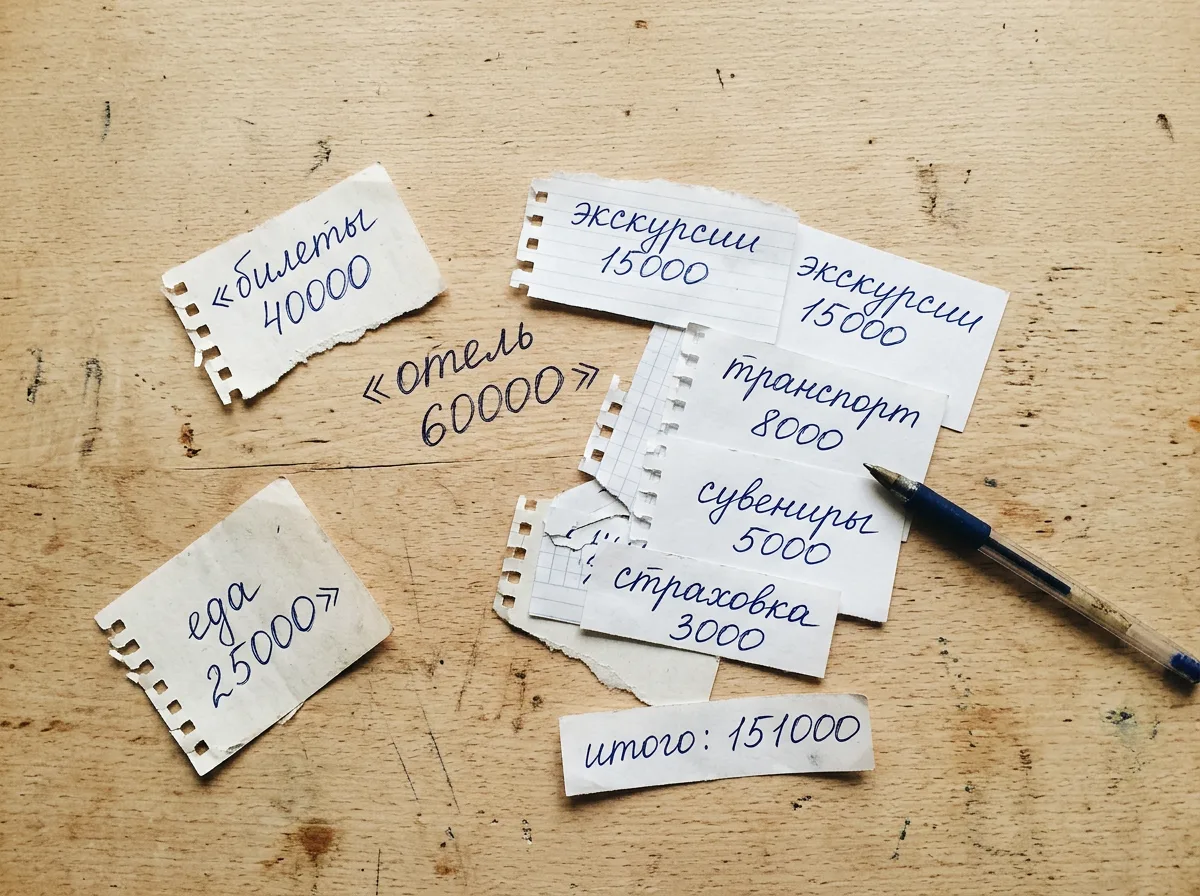 «билеты
40000
«отель
60000»
еда
25000»
экскурсии
15000
экскурсии
15000
транспорт
8000
сувениры
5000
страховка
3000
итого: 151000